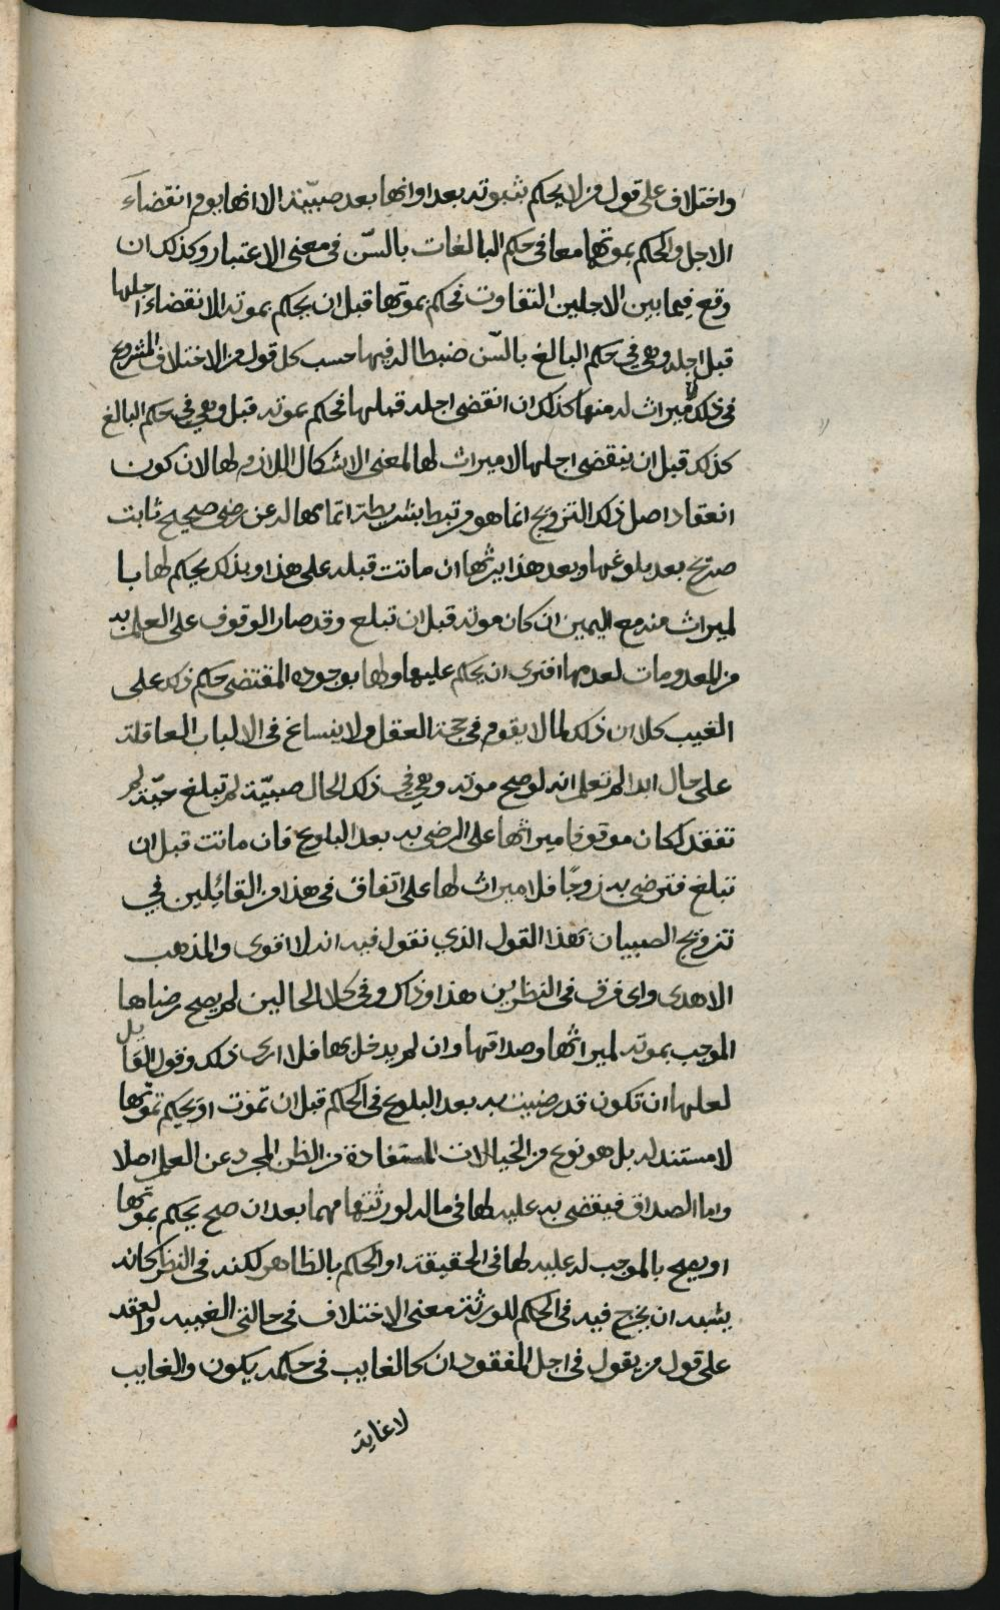 واختلاف على قول من لا يحكم بثبوته بعد اوانها بعد صبيّة الا انها يوم انقضاء
الاجل والحكم بموتهما معا في حكم البالغات بالسّن في معنى الاعتبار وكذلك ان
وقع فيما بين الاجلين التفاوت فحكم بموتها قبل ان يحكم بموته لانقضاء اجلها
قبل اجله وهي في حكم البالغ بالسّن ضبطا له فيها حسب كل قول من الاختلاف المشروح
في ذلك لا ميراث له منها كذلك ان انقضى اجله قبلها فحكم بموته قبل وهي في حكم البالغ
كذلك قبل ان ينقضي اجلها لا ميراث لها لمعنى الاشكال اللازم لها لان كون
انعقاد اصل ذلك التزويج انما هو مرتبط بشريطة اتمامها له عن رضى صحيح ثابت
صريح بعد بلوغها وبعد هذا يرثها ان ماتت قبله على هذا وبذلك يحكم لها با
لميراث منه مع اليمين ان كان موته قبل ان تبلغ وقد صار الوقوف على العلم به
من المعدومات لعدمها افترى ان يحكم عليها ولها بوجوده المقتضى حكم ذلك على
الغيب كلا ان ذلك لما لا يقوم في حجة العقل ولا ينساغ في الالباب العاقلة
على حال ابدا الم تعلم انه لو صح موته وهي في ذلك الحال صبيّة لم تبلغ حيّة لم
تفقد لكان موقوفا ميراثها على الرضى به بعد البلوغ فان ماتت قبل ان
تبلغ فترضى به زوجًا فلا ميراث لها على اتفاق في هذا من القائلين في
تزويج الصبيان بهذا القول الذي نقول فيه انه لاقوى والمذهب
الاهدى واى فرق في النظر بين هذا وذاك وفي كلا الحالين لم يصح رضاها
الموجب بموته لميراثها وصداقها وان لم يدخل بها فلا ارى ذلك وقول القايل
لعلها ان تكون قد رضيت به بعد البلوغ في الحكم قبل ان تموت او يحكم بموتها
لا مستند له بل هو نوع من الخيالات المستفادة من الظن المجرد عن العلم اصلا
واما الصداق فيقضى به عليه لها في ماله لورثتها مهما بعد ان صح يحكم بموتها
او يصح بالموجب له عليه لها في الحقيقة او الحكم بالظاهر لكنه في النظر كانه
يشبه ان يخرج فيه في الحكم للورثة معنى الاختلاف في حالتي الغيبه والفقد
على قول من يقول في اجل المفقود ان كالغايب في حكمه يكون والغايب
لا غاية